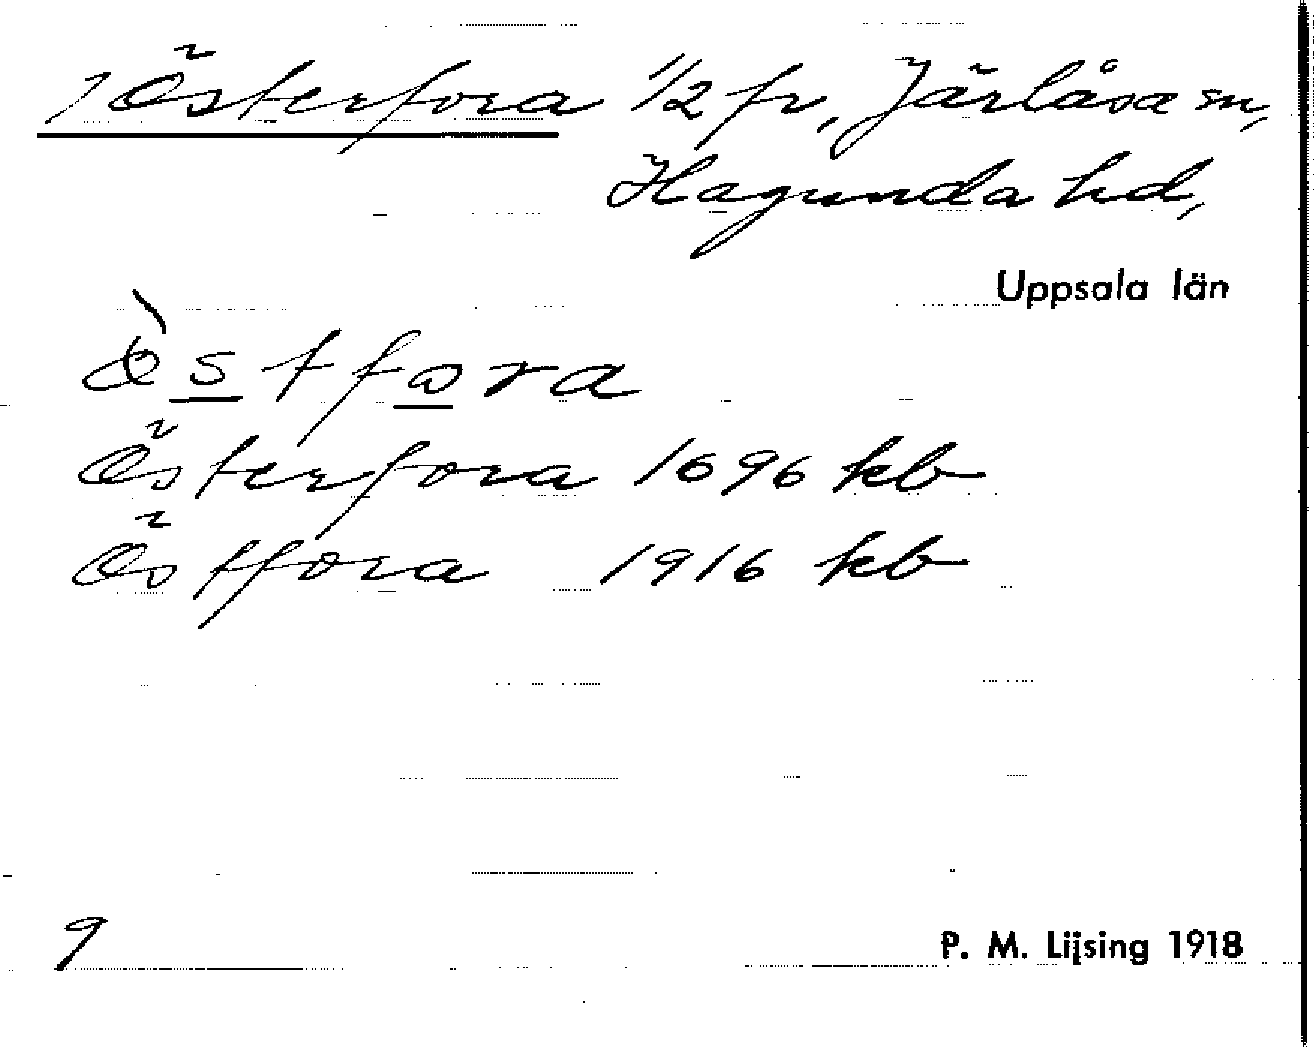 1 Österfora 1/2 fr, Järlåsa sn,
Hagunda hd,
Uppsala län
ö̀stfωra
Österfora 1696 kb
Östfora 1916 kb
9
P. M. Lijsing 1918